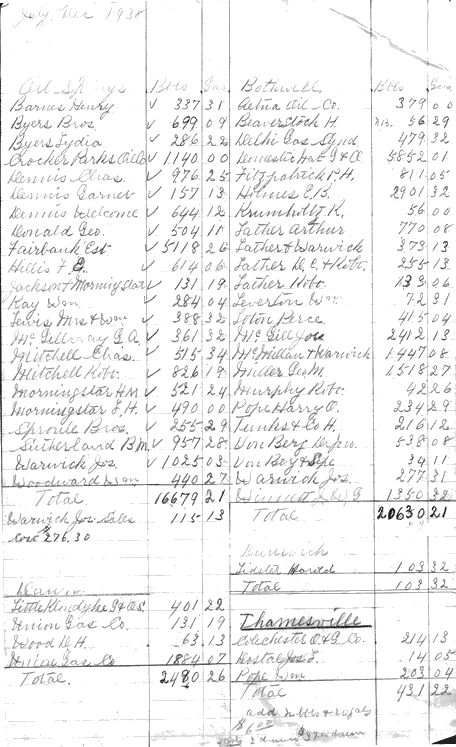 July, Dec 1938
Oil Springs Bbls Gas
Barnes Henry ✓ 337 31
Byers Bros. ✓ 699 09
Byers Lydia ✓ 286 22
Crocker Parks Oil Co ✓ 1140 00
Dennis Chas. ✓ 976 25
Dennis Garnet ✓ 157 13
Dennis Welcome ✓ 644 12
Donald Geo. ✓ 504 11
Fairbank Est ✓ 5118 26
Hillis F. E. ✓ 614 06
Jackson & Morningstar ✓ 131 19
Kay Wm. ✓ 284 04
Lewis Mrs & Wm ✓ 388 32
McGillvray G. A. ✓ 361 32
Mitchell Chas. ✓ 515 34
Mitchell Robt. ✓ 826 19
Morningstar H.M ✓ 521 24
Morningstar L.H. ✓ 490 00
Sproule Bros. ✓ 255 29
Sutherland B.M. ✓ 957 28
Warwick Jos. ✓ 1025 03
Woodward Wm 440 27
Total 16679 21
Warwick Jos. Sales 115 13
Cost $276.30
Little Klondyke G & O 401 22
Union Gas Co. 131 19
Wood D.H. 63 13
Union Gas Co 1884 07
Total 2480 26
Bothwell Bbls Gas
Aetna Oil Co. 379 00
Beaverstock H 56 29
Delhi Gas Synd 479 32
Domestic Nat G & O 5852 01
Fitzpatrick P.H. 811 05
Holmes E.B. 2901 32
Krumholtz R. 56 00
Lather Arthur 770 08
Lather & Warwick 373 13
Lather D.E. & Robt. 255 13
Lather Robt. 133 06
Leverton Wm 72 31
Loton Perce 415 04
McGill Jos 2412 13
McMillan & Warwick 1447 08
Miller Geo M 1518 27
Murphy Robt. 42 26
Pope Harry O. 234 29
Tunks & Co H. 216 12
Von Berg 538 08
Von Berg & 34 11
Warwick Jos. 277 31
1350 32
Total 20630 21
Dunwich
Lidster Harold 103 32
Total 103 32
Thamesville
Colchester O. & G. Co. 214 13
Jos. 14 05
Pope Wm 203 04
Total 431 22
add 2 bbls &